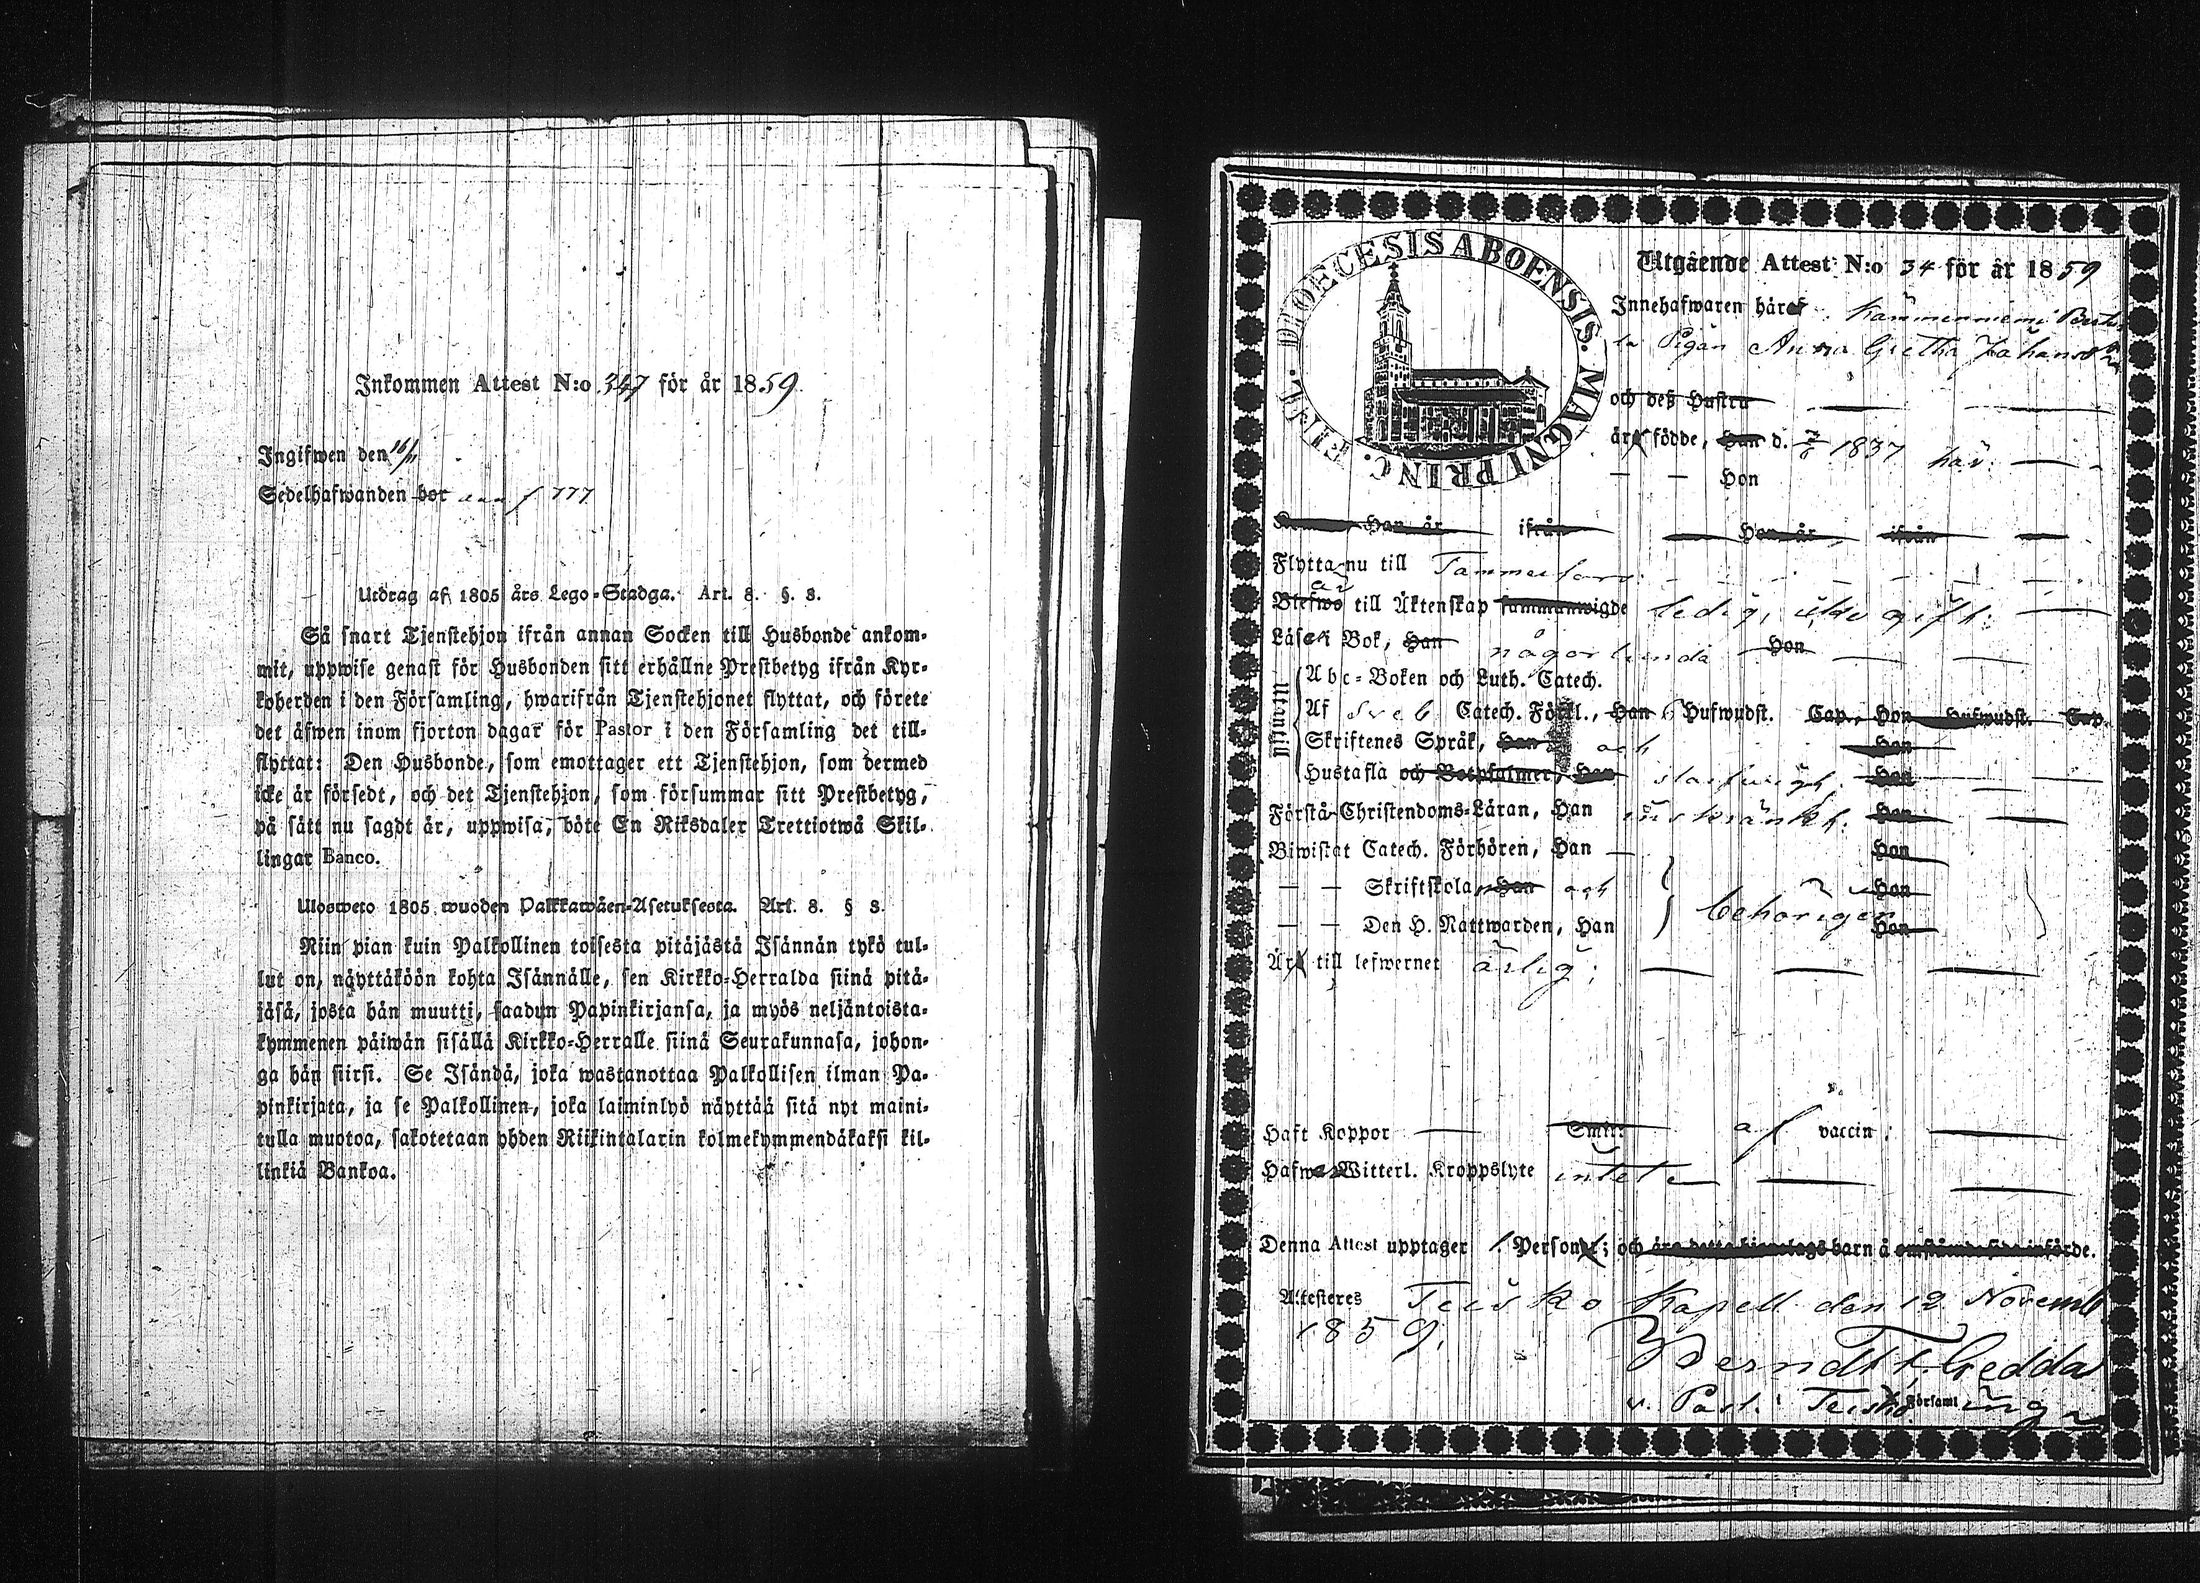 Inkommen Attest N:o 347 för år 1859
Ingifwen den 16/11
Sedelhafwanden bor
Utdrag af 1805 års Lego-Stadga. Art. 8. §. 8.
Så snart Tjenstehjon ifrån annan Socken till Husbonde ankom-
mit, uppwise genast för Husbonden sitt erhållne Prestbetyg ifrån Kyr-
koherden i den Församling, hwarifrån Tjenstehjonet flyttat, och förete
det äfwen inom fjorton dagar för Pastor i den Församling det till-
flyttat: Den Husbonde, som emottager ett Tjenstehjon, som dermed
icke är försedt, och det Tjenstehjon, som försummar sitt Prestbetyg,
på sätt nu sagdt är, uppwisa, böte En Riksdaler Trettiotwå Skil-
lingar Banco.
Ulosweto 1805 wuoden Palkkawäen-Asetuksesta. Art. 8. § 8.
Niin pian kuin Palkollinen toisesta pitäjästä Isännän tykö tul-
lut on, näyttäköön kohta Isännälle, sen Kirkko-Herralda siinä pitä-
jäsä, josta hän muutti, saadun Papinkirjansa, ja myös neljäntoista-
kymmenen päiwän sisällä Kirkko-Herralle siinä Seurakunnasa, johon-
ga hän siirsi. Se Isändä, joka wastanottaa Palkollisen ilman Pa-
pinkirjata, ja se Palkollinen, joka laiminlyö näyttää sitä nyt maini-
tulla muotoa, sakotetaan yhden Riikintalarin kolmekymmendäkaksi kil-
linkiä Bankoa.
DIOECESIS ABOENSIS. MAGNI PRINC. FINL.
Utgående Attest N:o 34 för år 1859
Innehafwaren häraf Kämmenniemi
Pigan Anna Gretha Johansd
och deß Hustru
är födde, Han d. 1837 här
— — Hon
Han är ifrån Hon är ifrån
Flytta nu till Tammerfors
Blefwo är till Äktenskap sammanwigde ledig,
Läse i Bok, Han någorlunda Hon
Utantill
Abc-Boken och Luth. Catech.
Af Sveb Catech. Förkl., Han 6 Hufwudst. Cap., Hon Hufwudst. Cap.
Skriftenes Språk, Han och Hon
Hustafla och Botpsalmer, Han Hon
Förstå Christendoms-Läran, Han inskränkt. Hon
Biwistat Catech. Förhören, Han Hon
— — Skriftskola, Han och Hon
behörigen
— — Den H. Nattwarden, Han Hon
Är till lefwernet ärlig;
Haft Koppor Smitt af vaccin.
Hafwa Witterl. Kroppslyte intet
Denna Attest upptager 1 Person; och äro detta hjonelags barn å omstående sida införde.
Attesteres Teisko Kapell den 12 Novemb
1859.
Berndt F. Gedda
v. Past. i Teisko Församling